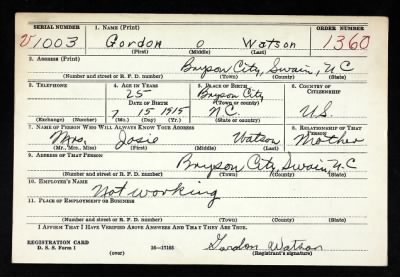 SERIAL NUMBER 1. NAME (Print) ORDER NUMBER
V1003 Gordon O Watson 1360
(First) (Middle) (Last)
2. ADDRESS (Print)
Bryson City, Swain, N C
(Number and street or R. F. D. number) (Town) (County) (State)
3. TELEPHONE 4. AGE IN YEARS 5. PLACE OF BIRTH 6. COUNTRY OF CITIZENSHIP
25 Bryson City
DATE OF BIRTH (Town or county)
7 15 1915 N.C. U.S.
(Exchange) (Number) (Mo.) (Day) (Yr.) (State or country)
7. NAME OF PERSON WHO WILL ALWAYS KNOW YOUR ADDRESS 8. RELATIONSHIP OF THAT PERSON
Mrs, Josie Watson Mother
(Mr., Mrs., Miss) (First) (Middle) (Last)
9. ADDRESS OF THAT PERSON
Bryson City Swain N.C
(Number and street or R. F. D. number) (Town) (County) (State)
10. EMPLOYER'S NAME
Not working
11. PLACE OF EMPLOYMENT OR BUSINESS
(Number and street or R. F. D. number) (Town) (County) (State)
I AFFIRM THAT I HAVE VERIFIED ABOVE ANSWERS AND THAT THEY ARE TRUE.
REGISTRATION CARD
D. S. S. Form 1 16—17105 Gordon Watson
(over) (Registrant's signature)